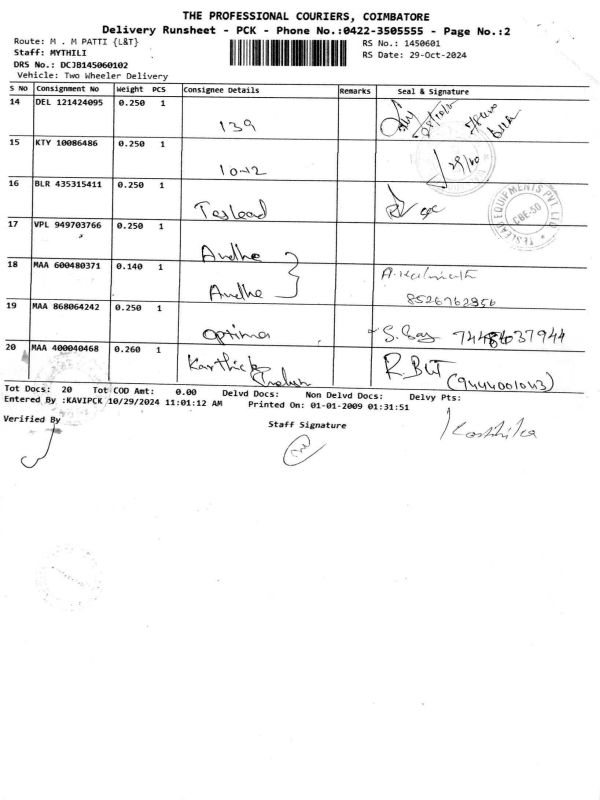 THE PROFESSIONAL COURIERS, COIMBATORE
Delivery Runsheet - PCK - Phone No.:0422-3505555 - Page No.:2
Route: M . M PATTI {L&T}
RS No.: 1450601
Staff: MYTHILI
RS Date: 29-Oct-2024
DRS No.: DCJB145060102
Vehicle: Two Wheeler Delivery
S No Consignment No Weight PCS Consignee Details Remarks Seal & Signature
14 DEL 121424095 0.250 1
139
15 KTY 10086486 0.250 1
1012 29/10
16 BLR 435315411 0.250 1
Teslead
TESLEAD EQUIPMENTS PVT. LTD
CBE-50
17 VPL 949703766 0.250 1
Andhe
18 MAA 600480371 0.140 1
Andhe 8526762356
19 MAA 868064242 0.250 1
optima
20 MAA 400040468 0.260 1
Karthick
(9444001043)
Tot Docs: 20 Tot COD Amt: 0.00 Delvd Docs: Non Delvd Docs: Delvy Pts:
Entered By :KAVIPCK 10/29/2024 11:01:12 AM Printed On: 01-01-2009 01:31:51
Verified By
Staff Signature